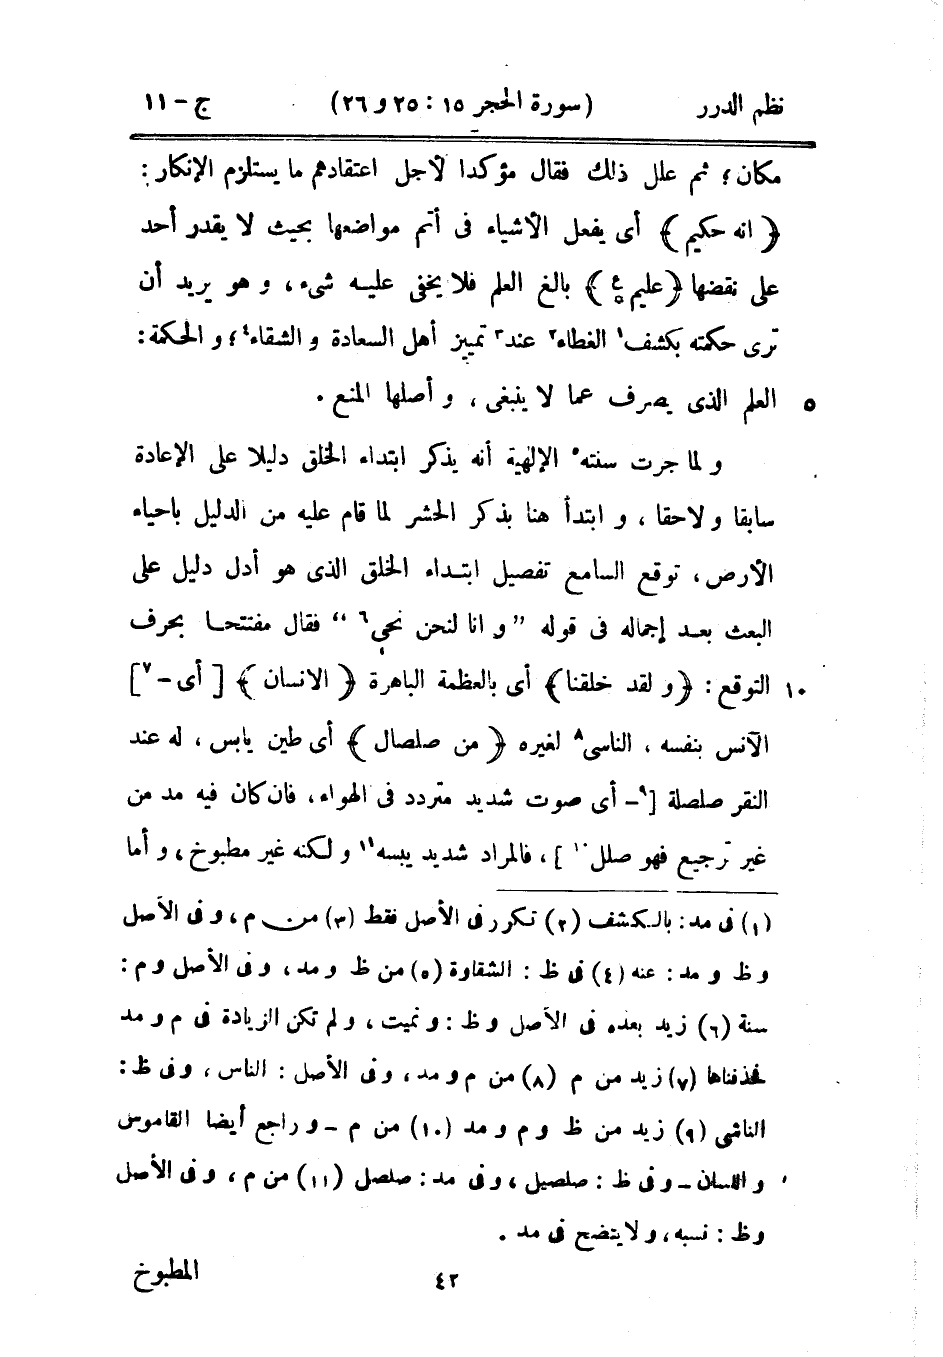 نظم الدرر (سورة الحجر ١٥ : ٢٥ و ٢٦) ج - ١١
مكان ؛ ثم علل ذلك فقال مؤكدا لأجل اعتقادهم ما يستلزم الإنكار :
﴿ انه حكيم ﴾ أى يفعل الأشياء فى أتم مواضعها بحيث لا يقدر أحد
على نقضها ﴿ عليم ۚ ع ﴾ بالغ العلم فلا يخفى عليه شىء ، و هو يريد أن
ترى حكمته بكشف١ الغطاء٢ عند٣ تمييز أهل السعادة و الشقاء٤ ؛ و الحكمة :
٥ العلم الذى يصرف عما لا ينبغى ، و أصلها المنع .
و لما جرت سنته٥ الإلهية أنه يذكر ابتداء الخلق دليلا على الإعادة
سابقا و لاحقا ، و ابتدأ هنا بذكر الحشر لما قام عليه من الدليل باحياء
الأرض ، توقع السامع تفصيل ابتداء الخلق الذى هو أدل دليل على
البعث بعد إجماله فى قوله ” و انا لنحن نحي٦ “ فقال مفتتحا بحرف
١٠ التوقع : ﴿ و لقد خلقنا ﴾ أى بالعظمة الباهرة ﴿ الانسان ﴾ [ أى -٧ ]
الآنس بنفسه ، الناسى٨ لغيره ﴿ من صلصال ﴾ أى طين يابس ، له عند
النقر صلصلة [٩- أى صوت شديد متردد فى الهواء ، فان كان فيه مد من
غير ترجيع فهو صلل١٠ ] ، فالمراد شديد يبسه١١ و لكنه غير مطبوخ ، و أما
(١) فى مد : بالكشف (٢) تكرر فى الأصل فقط (٣) من م ، و فى الأصل
و ظ و مد : عنه (٤) فى ظ : الشقاوة (٥) من ظ و مد ، و فى الأصل و م :
سنة (٦) زيد بعده فى الأصل و ظ : و نميت ، و لم تكن الزيادة فى م و مد
فحذفناها (٧) زيد من م (٨) من م و مد ، و فى الأصل : الناس ، و فى ظ :
الناشى (٩) زيد من ظ و م و مد (١٠) من م - و راجع أيضا القاموس
و اللسان - و فى ظ : صلصيل ، و فى مد : صلصل (١١) من م ، و فى الأصل
و ظ : نسبه ، و لا يتضح فى مد .
٤٢ المطبوخ